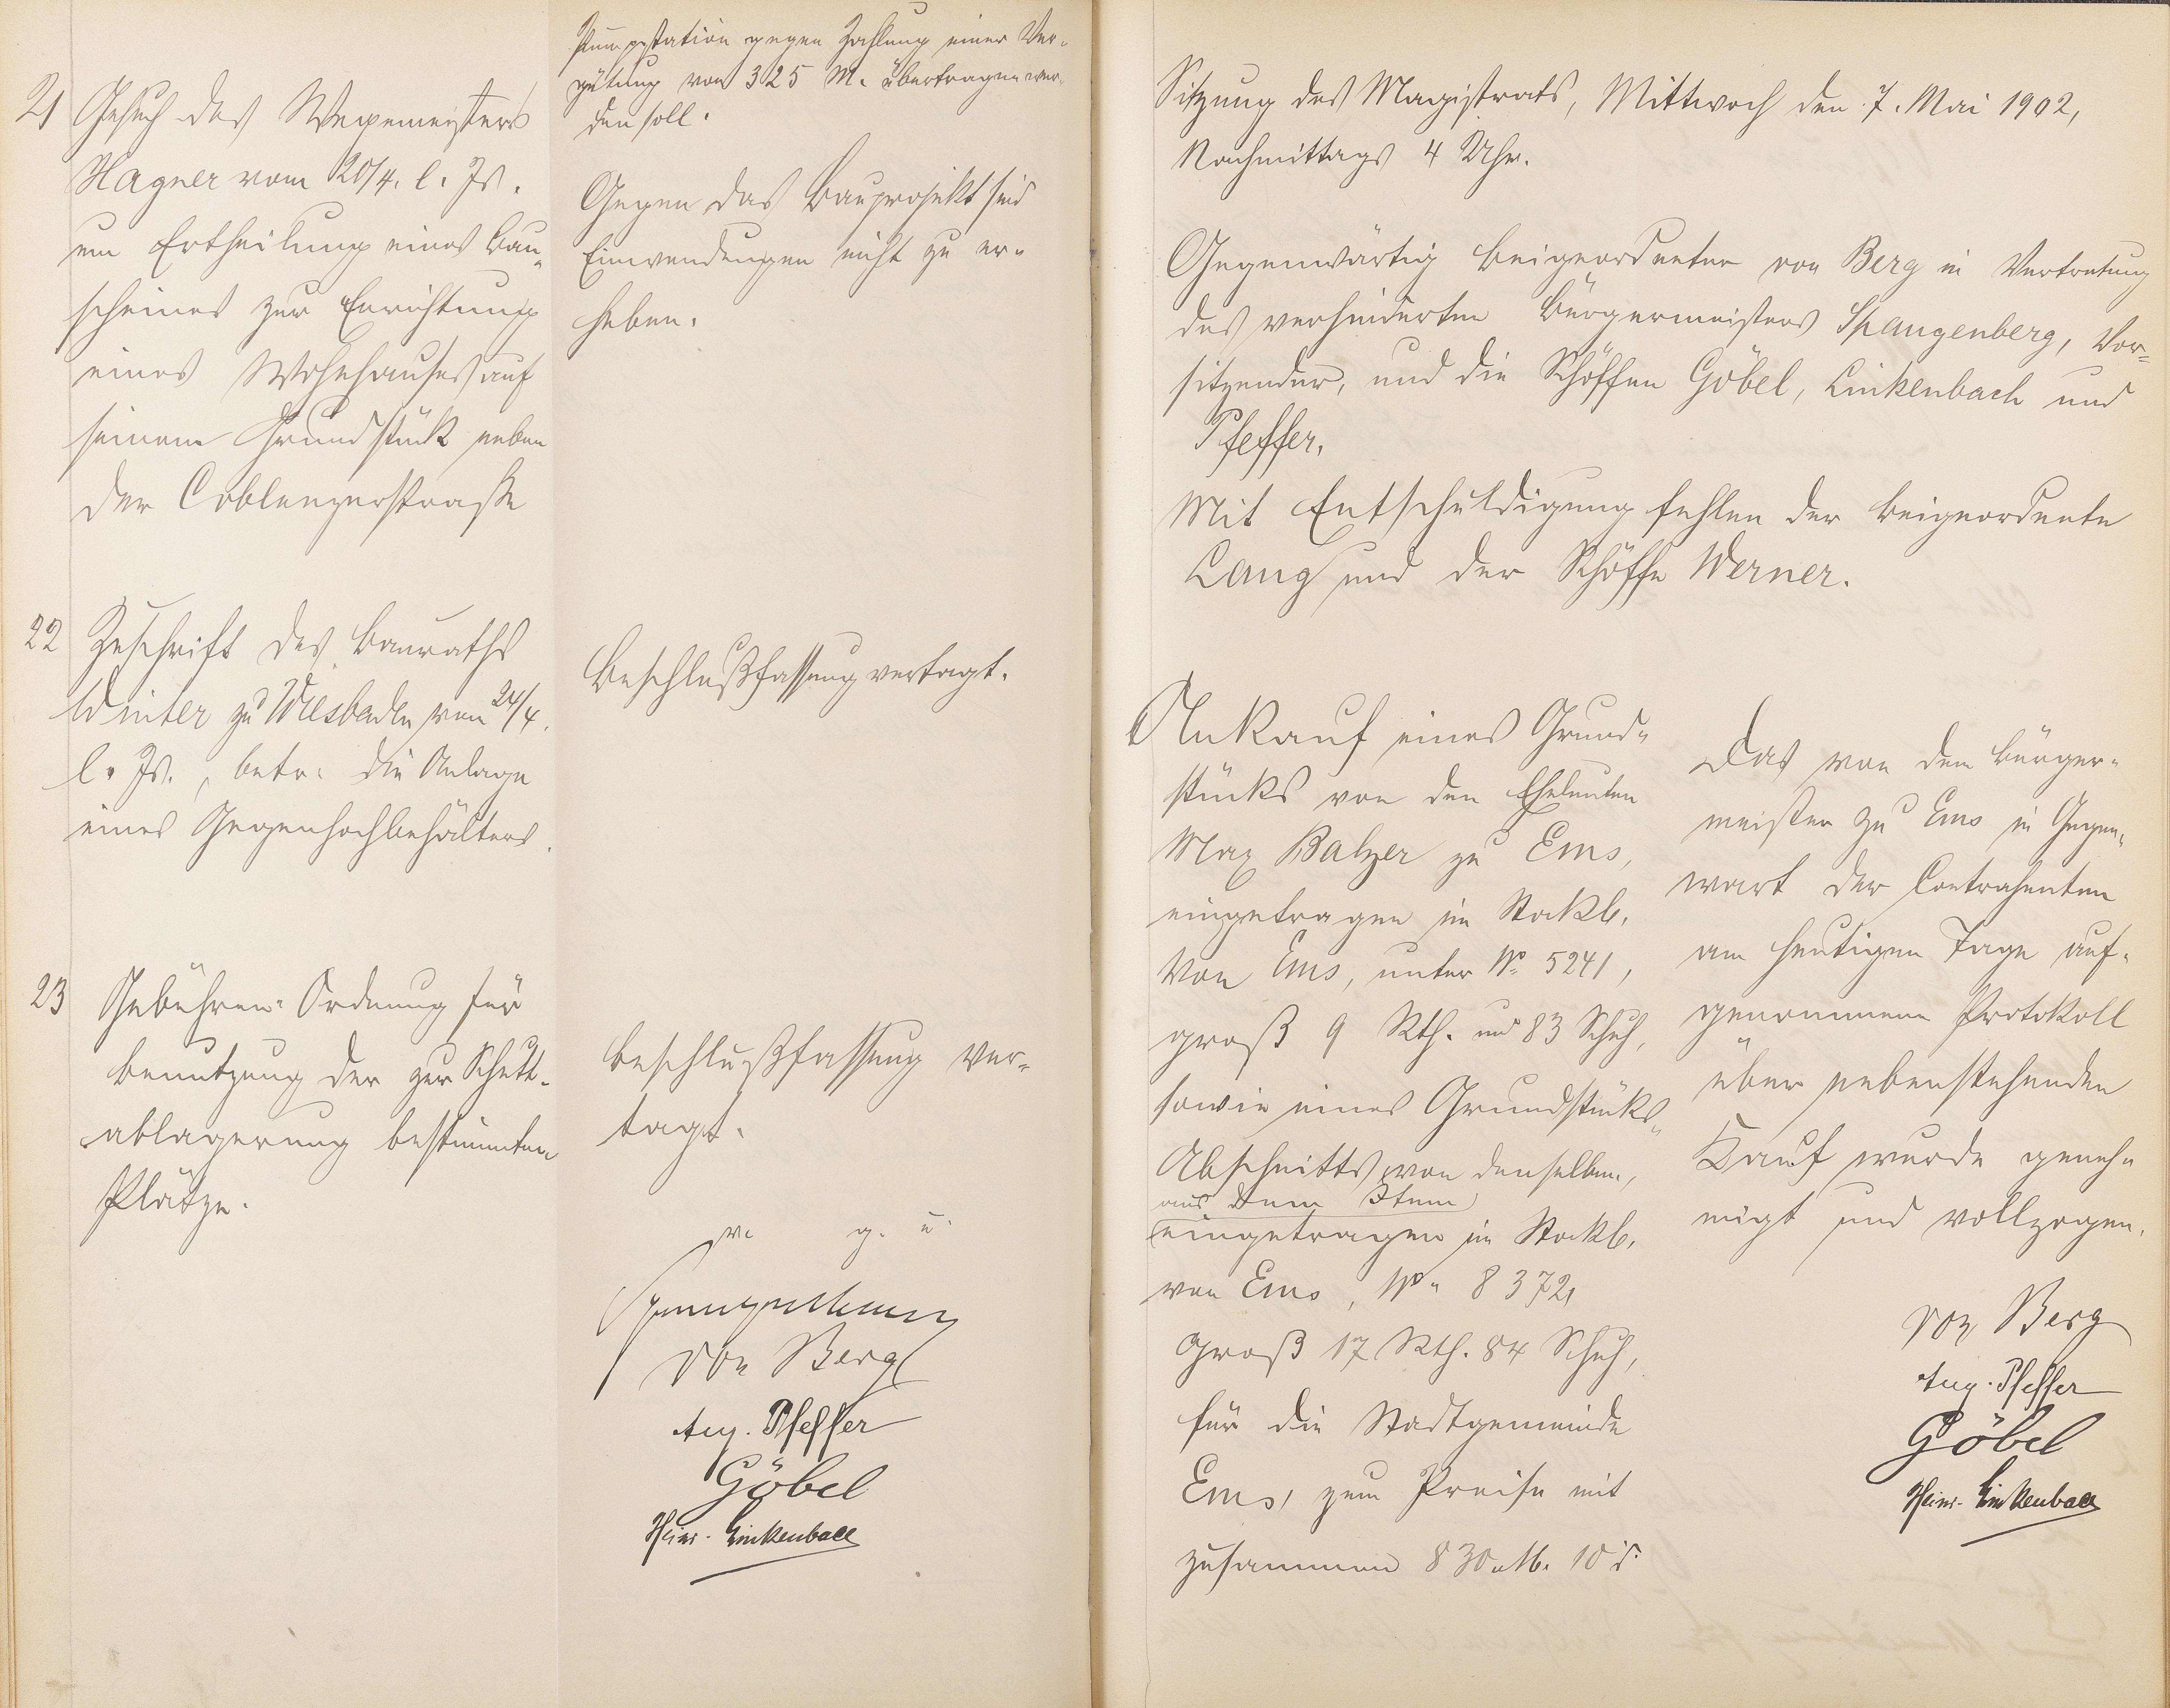 Pumpstation gegen Zahlung einer Ver-
gütung von 325 M. übertragen wer-
den soll.
21 Gesuch des Wegemeisters
Wagner vom 20/4. l. Js.
um Ertheilung eines Bau-
scheines zur Errichtung
eines Wohnhauses auf
seinem Grundstück neben
der Coblenzerstraße
Gegen das Bauprojekt sind
Einwendungen nicht zu er-
heben.
22 Zuschrift des Bauraths
Winter zu Wiesbaden vom 24/4.
l. Js., betr. die Anlage
eines Gegenhochbehälters.
Beschlußfassung vertagt.
23 Gebühren-Ordnung für
Benutzung der zur Schutt-
ablagerung bestimmten
Plätze.
Beschlußfassung ver-
tagt.
v. g. u.
Spangenberg
von Berg
Aug. Pfeffer
Göbel
Heinr. Linkenbach
Sitzung des Magistrats, Mittwoch den 7. Mai 1902,
Nachmittags 4 Uhr.
Gegenwärtig Beigeordneter von Berg in Vertretung
des verhinderten Bürgermeisters Spangenberg, Vor-
sitzender, und die Schöffen Göbel, Linkenbach und
Pfeffer.
Mit Entschuldigung fehlen der Beigeordnete
Lang und der Schöffe Werner.
Ankauf eines Grund-
stücks von den Eheleuten
Max Balzer zu Ems,
eingetragen im Stockb.
von Ems, unter No. 5241,
groß 9 Rth. und 83 Schuh,
sowie eines Grundstücks-
Abschnitts von denselben,
aus dem Item
eingetragen im Stockb.
von Ems, No. 8372,
groß 17 Rth. 84 Schuh,
für die Stadtgemeinde
Ems, zum Preise mit
zusammen 830 M. 10 d.
Das von dem Bürger-
meister zu Ems in Gegen-
wart der Contrahenten
am heutigen Tage auf-
genommene Protokoll
über nebenstehenden
Kauf wurde geneh-
migt und vollzogen.
von Berg
Aug. Pfeffer
Göbel
Heinr. Linkenbach